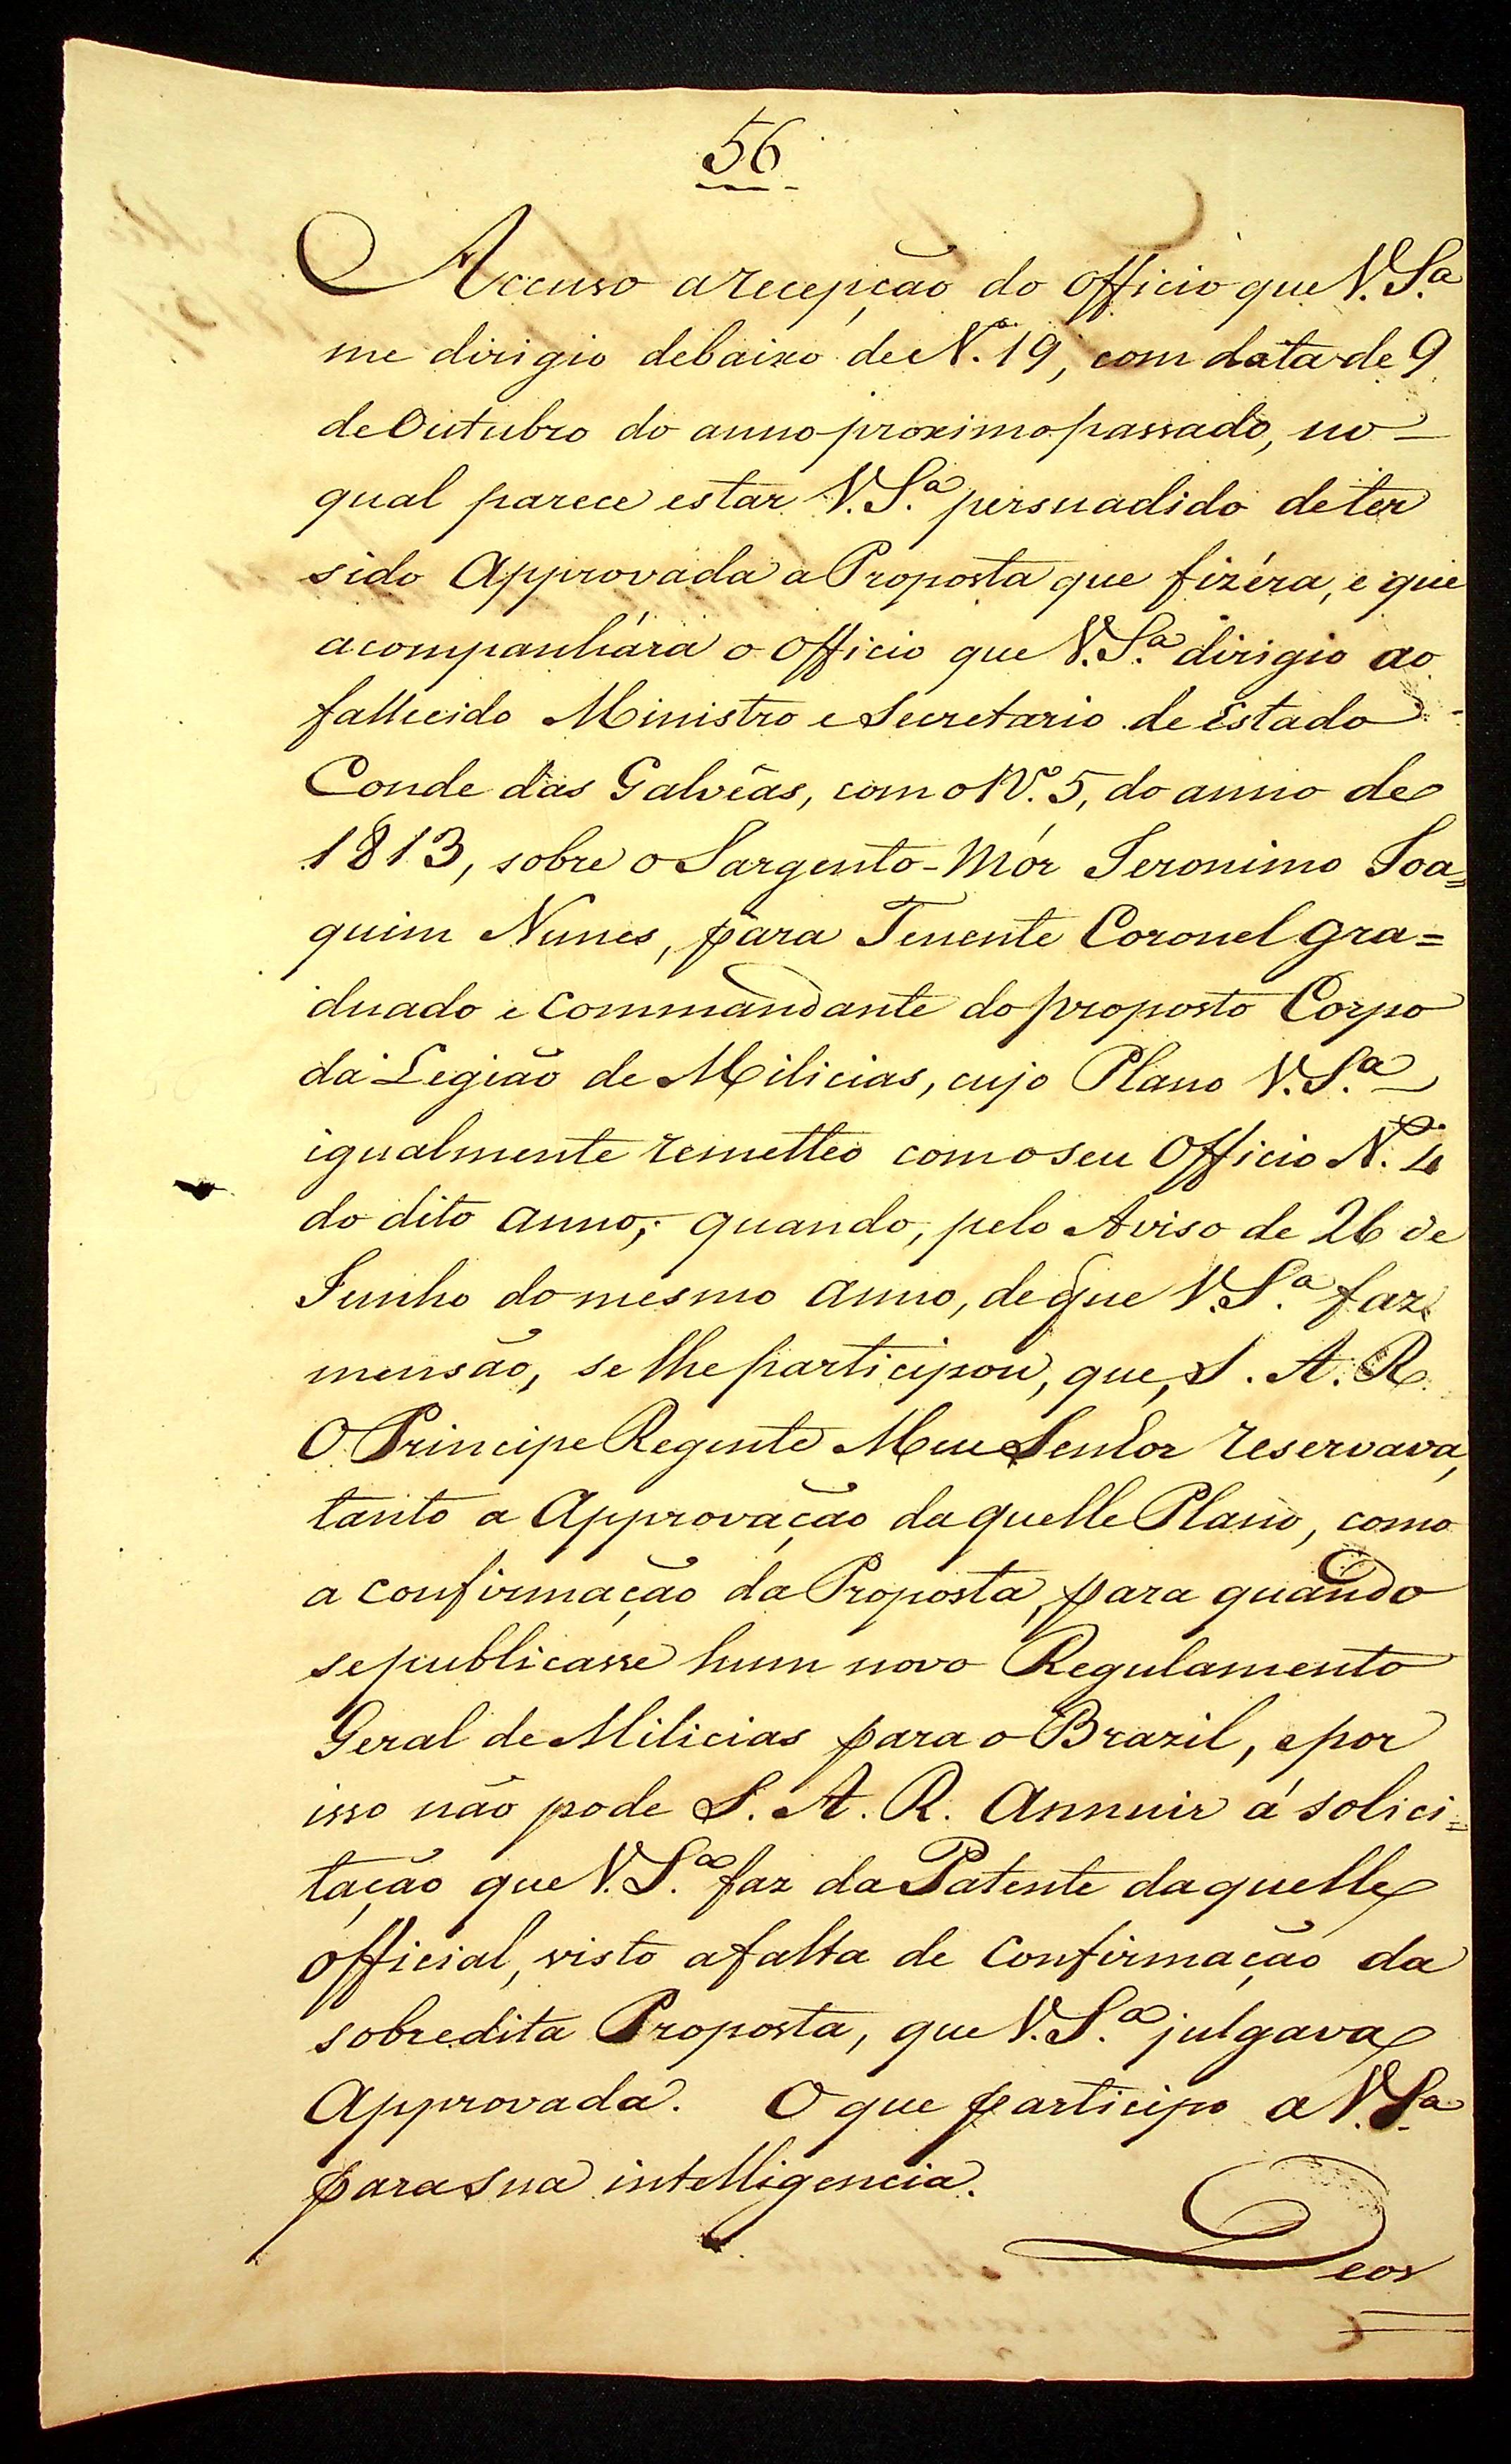 56
Accuso a recepção do Officio que V. S.ª
me dirigio debaixo de N.º 19, com data de 9
de Outubro do anno proximo passado, no
qual parece estar V. S.ª persuadido de ter
sido Approvada a Proposta que fizéra, e que
acompanhára o Officio que V. S.ª dirigio ao
fallecido Ministro e Secretario de Estado
Conde das Galvêas, com o N.º 5, do anno de
1813, sobre o Sargento-Mór Jeronimo Joa=
quim Nunes, para Tenente Coronel gra=
duado e Commandante do proposto Corpo
da Legião de Milicias, cujo Plano V. S.ª
igualmente remetteo com o seu Officio N.º 4
do dito anno; quando, pelo Aviso de 26 de
Junho do mesmo anno, de que V. S.ª faz
mensão, se lhe participou, que, S. A. R.
O Principe Regente Meu Senhor reservava,
tanto a Approvação daquelle Plano, como
a confirmação da Proposta, para quando
se publicasse hum novo Regulamento
Geral de Milicias para o Brazil, e por
isso não pode S. A. R. Annuir á solici=
tação que V. S.ª faz da Patente daquelle
Official, visto a falta de Confirmação da
sobredita Proposta, que V. S.ª julgava
Approvada. O que participo a V. S.ª
para sua intelligencia.
Deos